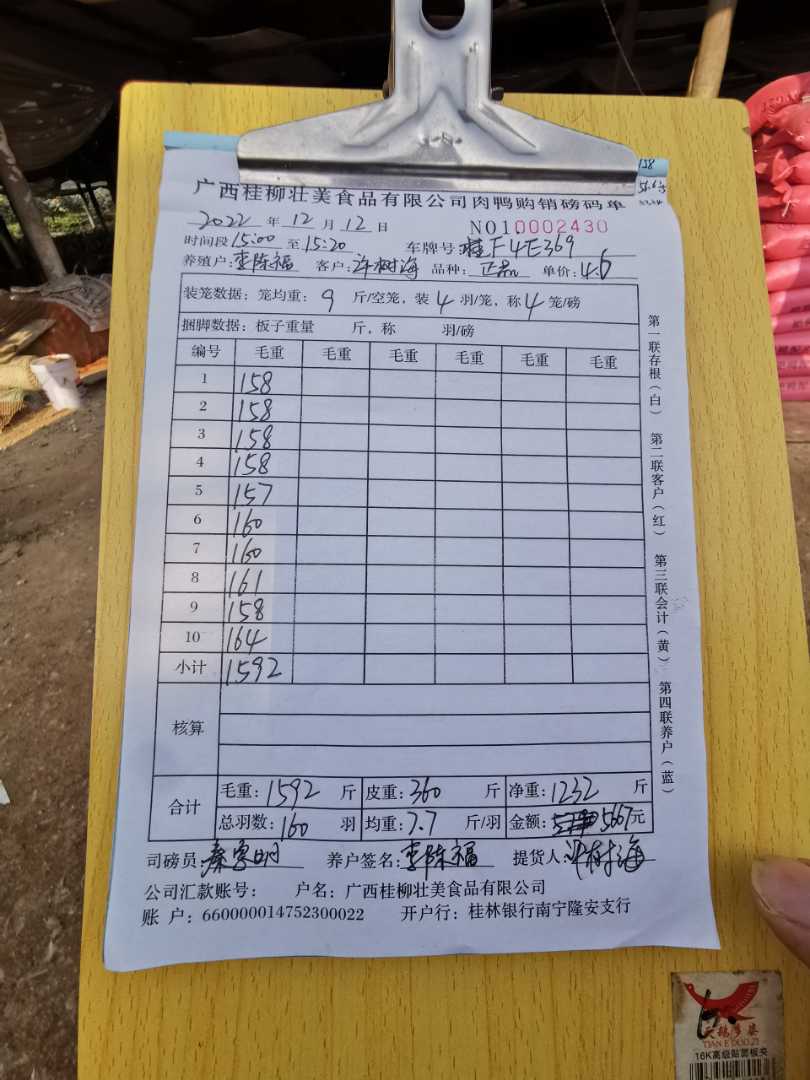 158
56.6
广西桂柳壮美食品有限公司肉鸭购销磅码单
2022 年 12 月 12 日 NO10002430
时间段 15:00 至 15:20 车牌号: 桂F4E369
养殖户: 李陈福 客户: 许树海 品种: 正品 单价: 4.6
装笼数据: 笼均重: 9 斤/空笼, 装 4 羽/笼, 称 4 笼/磅
捆脚数据: 板子重量 斤, 称 羽/磅
编号 毛重 毛重 毛重 毛重 毛重 毛重
1 158
2 158
3 158
4 158
5 157
6 160
7 160
8 161
9 158
10 164
小计 1592
核算
合计 毛重: 1592 斤 皮重: 360 斤 净重: 1232 斤
总羽数: 160 羽 均重: 7.7 斤/羽 金额: 5667元
司磅员: 养户签名: 李陈福 提货人: 许树海
公司汇款账号: 户名: 广西桂柳壮美食品有限公司
账 户: 660000014752300022 开户行: 桂林银行南宁隆安支行
第一联存根（白） 第二联客户（红） 第三联会计（黄） 第四联养户（蓝）
天鹅多姿
TIAN E DUO ZI
16K高级贴面板夹